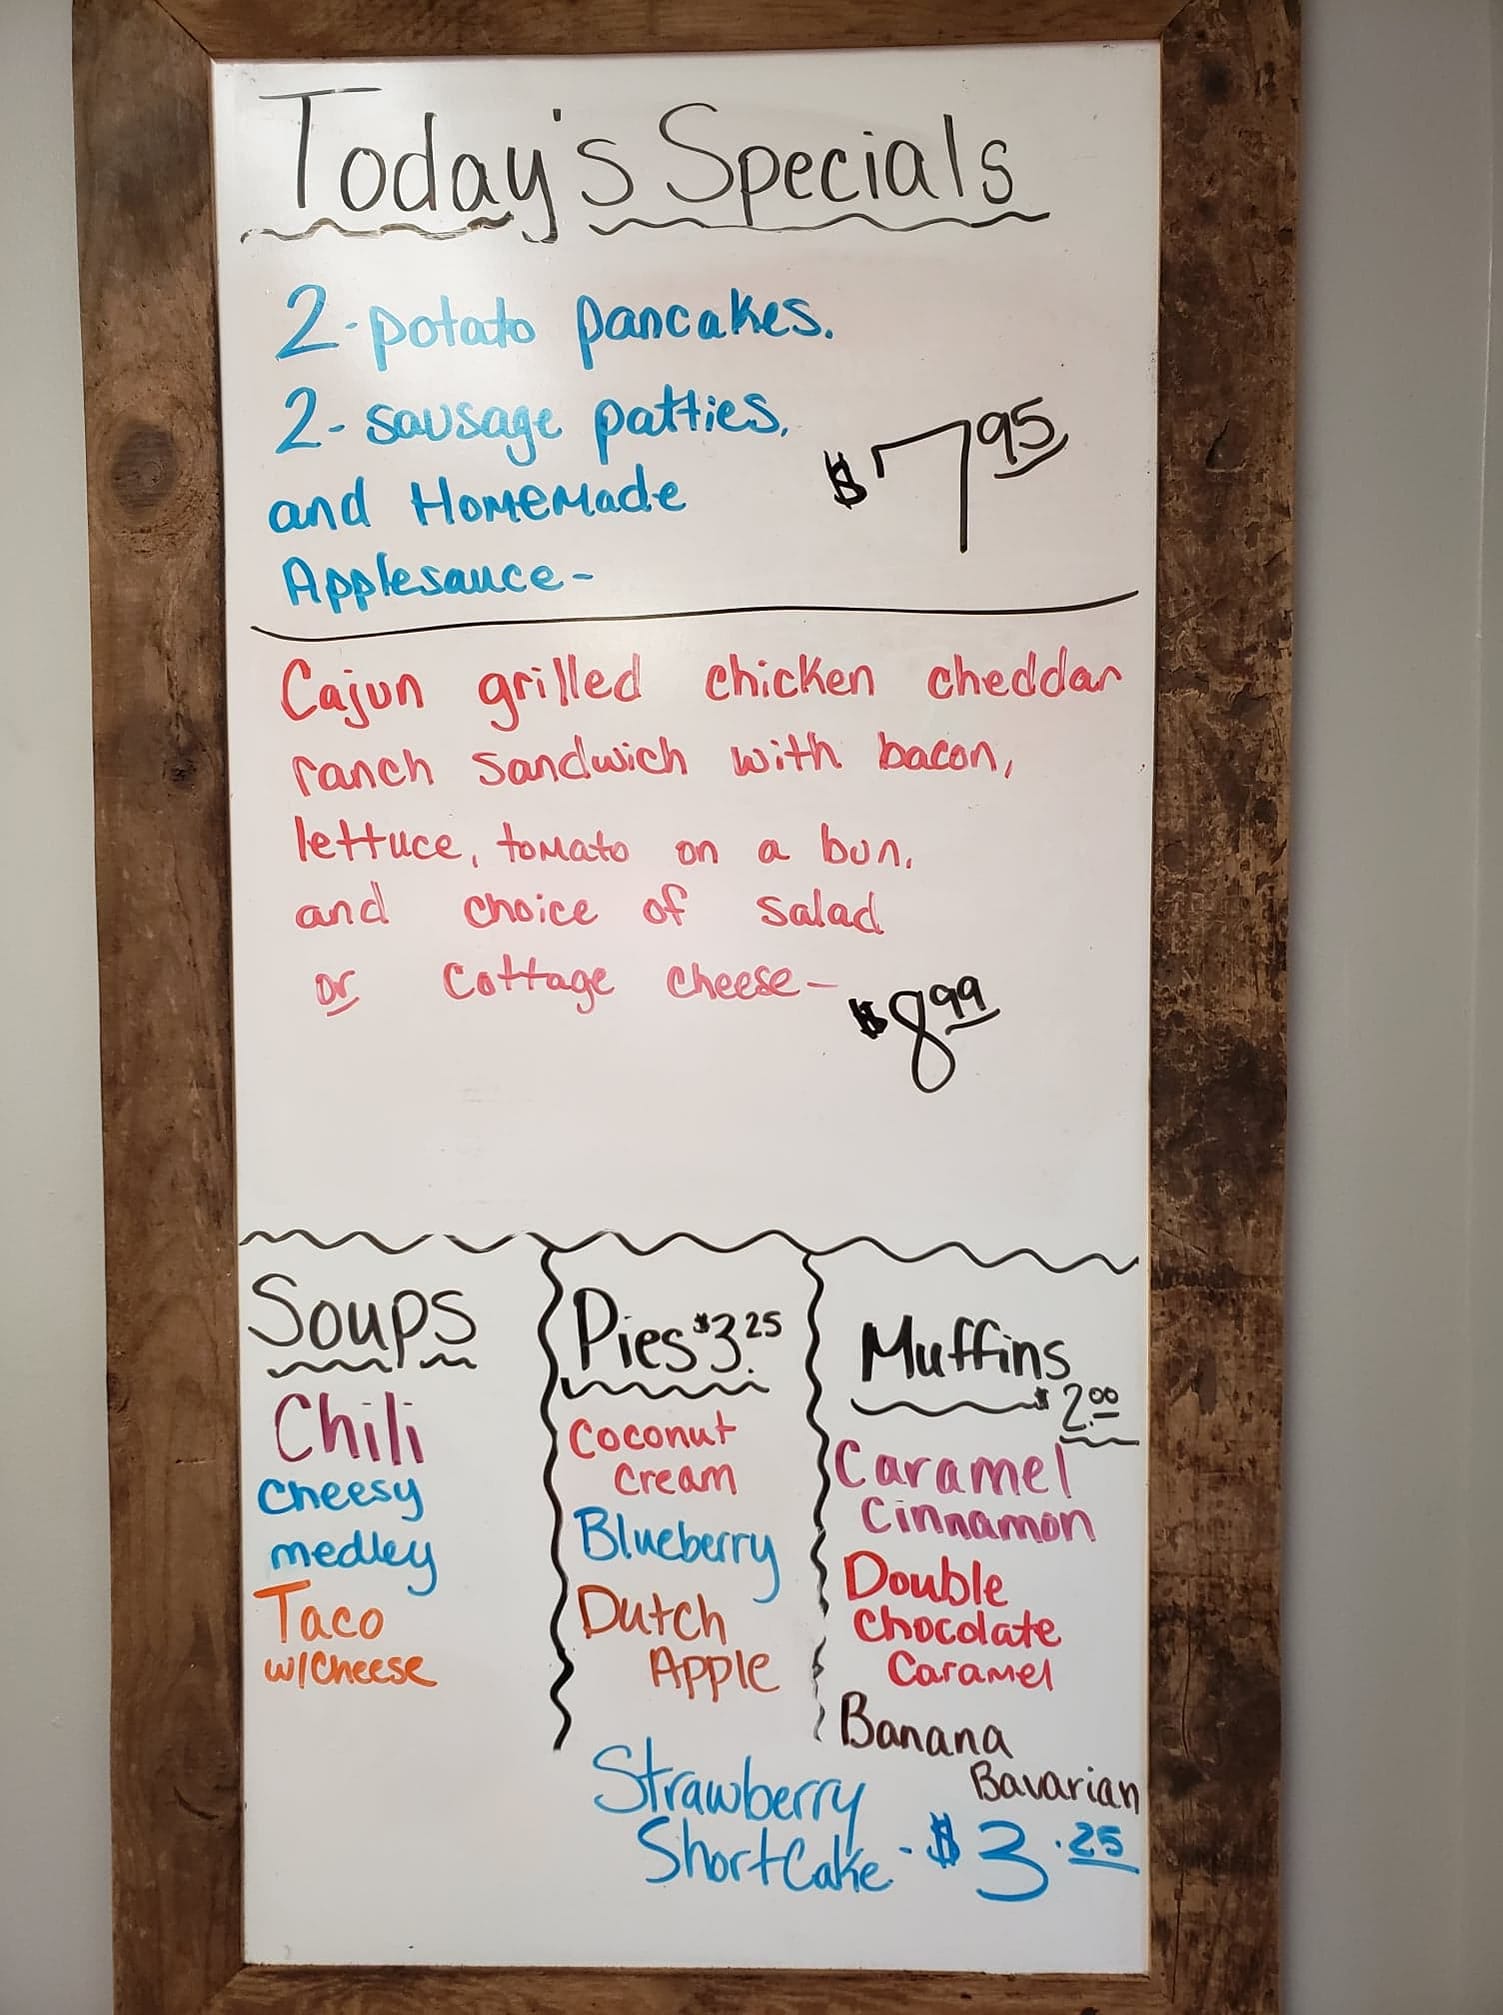 Today's Specials
2-potato pancakes.
2-sausage patties,
and Homemade
Applesauce-
$7.95
Cajun grilled chicken cheddar
ranch sandwich with bacon,
lettuce, tomato on a bun,
and choice of salad
or cottage cheese-
$8.99
Soups
Chili
Cheesy
medley
Taco
w/Cheese
Pies $3.25
Coconut
Cream
Blueberry
Dutch
Apple
Muffins
$2.00
Caramel
Cinnamon
Double
Chocolate
Caramel
Banana
Bavarian
Strawberry
ShortCake - $3.25